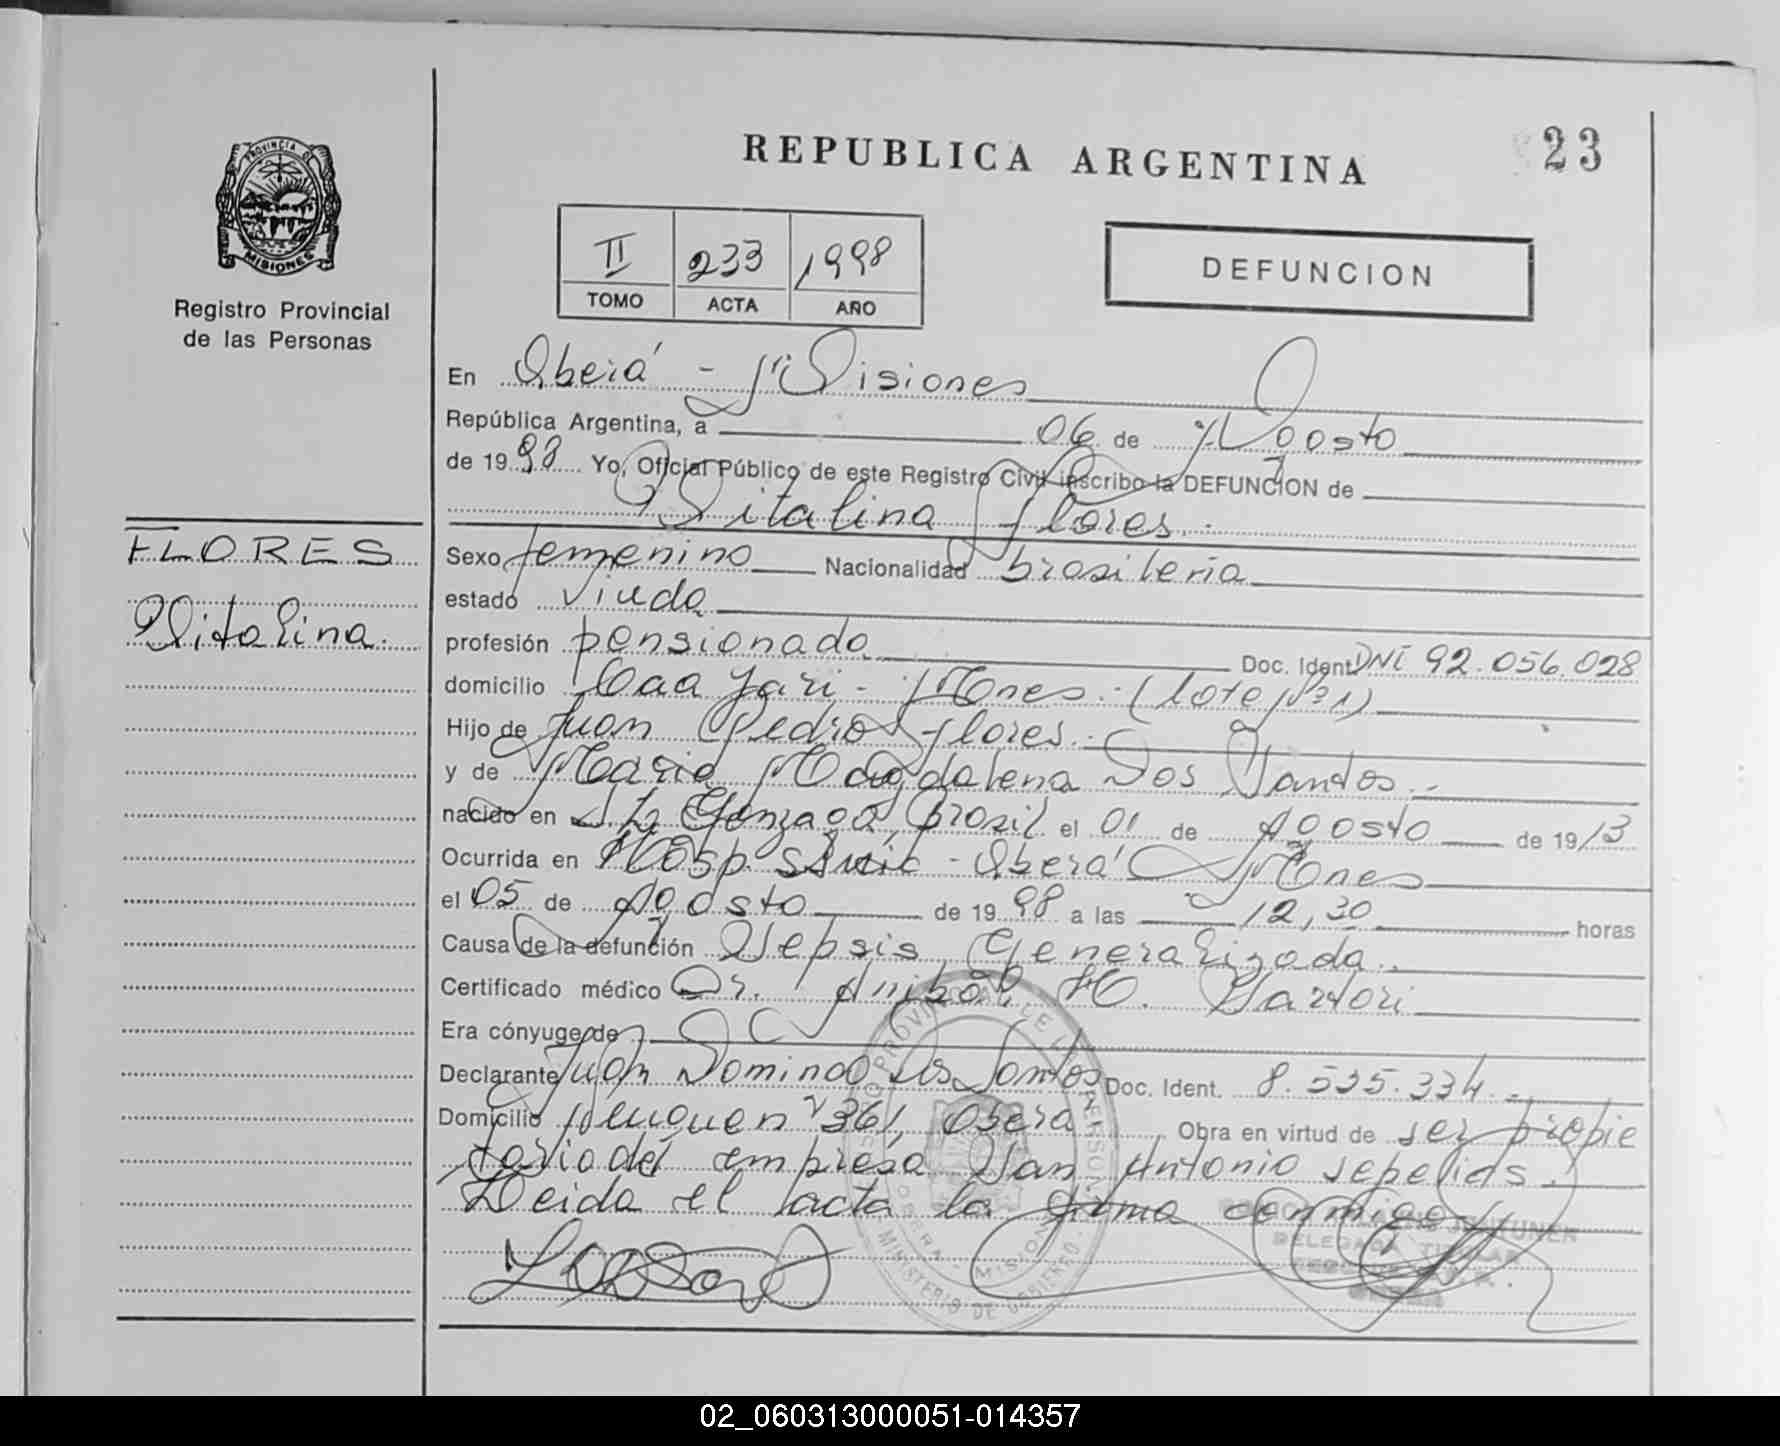 REPUBLICA ARGENTINA
23
PROVINCIA DE
MISIONES
Registro Provincial
de las Personas
II 233 1998
TOMO ACTA AÑO
DEFUNCION
En Oberá - Misiones
República Argentina, a 06 de Agosto
de 1998 Yo, Oficial Público de este Registro Civil inscribo la DEFUNCION de
Vitalina Flores.
FLORES
Vitalina.
Sexo femenino Nacionalidad brasileria
estado viuda
profesión pensionada Doc. Ident. DNI 92.056.028
domicilio Caa Yari - Mnes. - (lote Nº 1)
Hijo de Juan Pedro Flores. -
y de Maria Magdalena Dos Santos. -
nacido en Gonzaga, Brasil el 01 de Agosto de 1913
Ocurrida en Hosp. - Oberá Mnes
el 05 de Agosto de 1998 a las 12,30 horas
Causa de la defunción Sepsis Generalizada.
Certificado médico Dr. Anibal H. Sartori
Era cónyuge de
Declarante Juan Domingo Dos Santos Doc. Ident. 8.535.334. -
Domicilio 361, Oberá Obra en virtud de ser propie
tario del empresa San Antonio sepelios.
Leida el acta la firma conmigo
MINISTERIO DE GOBIERNO
OBERA - MISIONES
DELEGADA TITULAR
02_060313000051-014357